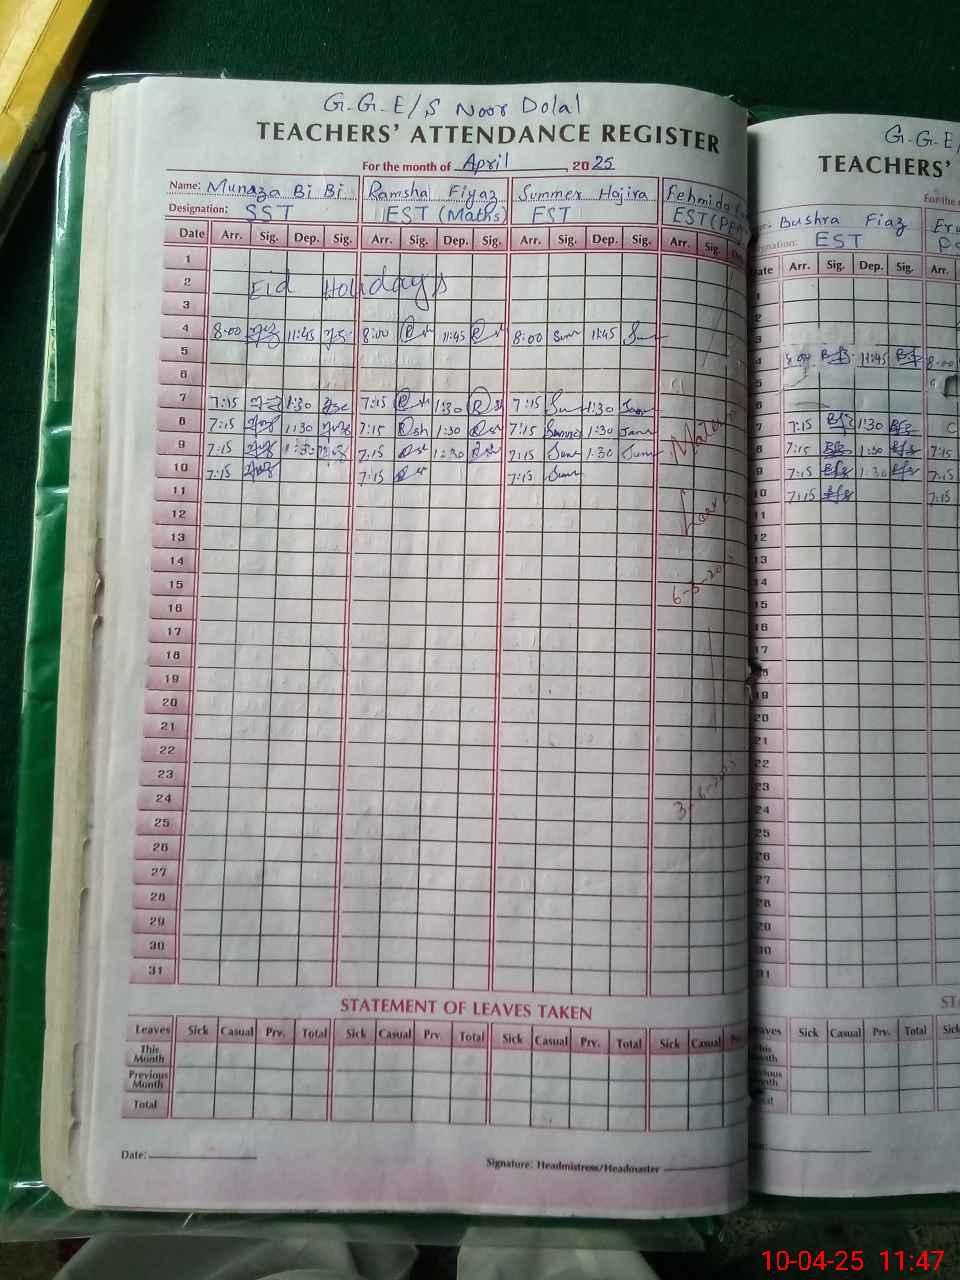 G.G.E/S Noor Dolal
TEACHERS' ATTENDANCE REGISTER
For the month of April, 2025
Name: Munaza Bi Bi Ramsha Fiyaz Summer Hajira Fehmida
Designation: SST EST (Maths) EST EST(PE
Date Arr. Sig. Dep. Sig. Arr. Sig. Dep. Sig. Arr. Sig. Dep. Sig. Arr. Sig.
1
2 Eid Holidays
3
4 8:00 11:45 8:00 11:45 8:00 Sum 11:45
5
6
7 7:15 1:30 7:15 1:30 7:15 1:30
8 7:15 1:30 7:15 Rsh 1:30 7:15 1:30
9 7:15 1:30 7:15 1:30 7:15 1:30
10 7:15 7:15 7:15
11
12
13
14
15
16
17
18
19
20
21
22
23
24
25
26
27
28
29
30
31
STATEMENT OF LEAVES TAKEN
Leaves Sick Casual Prv. Total Sick Casual Prv. Total Sick Casual Prv. Total Sick Casual
This Month
Previous Month
Total
Date:
Signature: Headmistress/Headmaster
G.G.E/
TEACHERS'
For the
Bushra Fiaz
EST
Date Arr. Sig. Dep. Sig. Arr.
4 8:00 11:45 8:00
5
6
7 7:15 1:30
8 7:15 1:30 7:15
9 7:15 1:30 7:15
10 7:15 7:15
11
12
13
14
15
16
17
19
20
21
22
23
24
25
26
27
28
29
30
31
ST
Sick Casual Prv. Total Sick
10-04-25 11:47